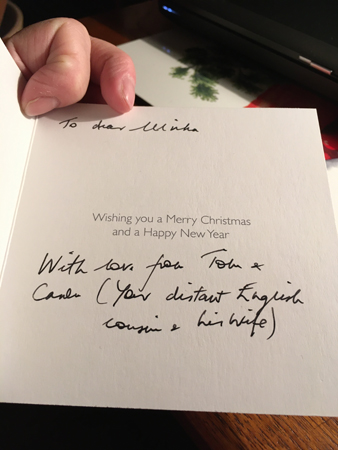 To dear Minka
Wishing you a Merry Christmas
and a Happy New Year
With love from &
(Your distant English
cousin & his wife)